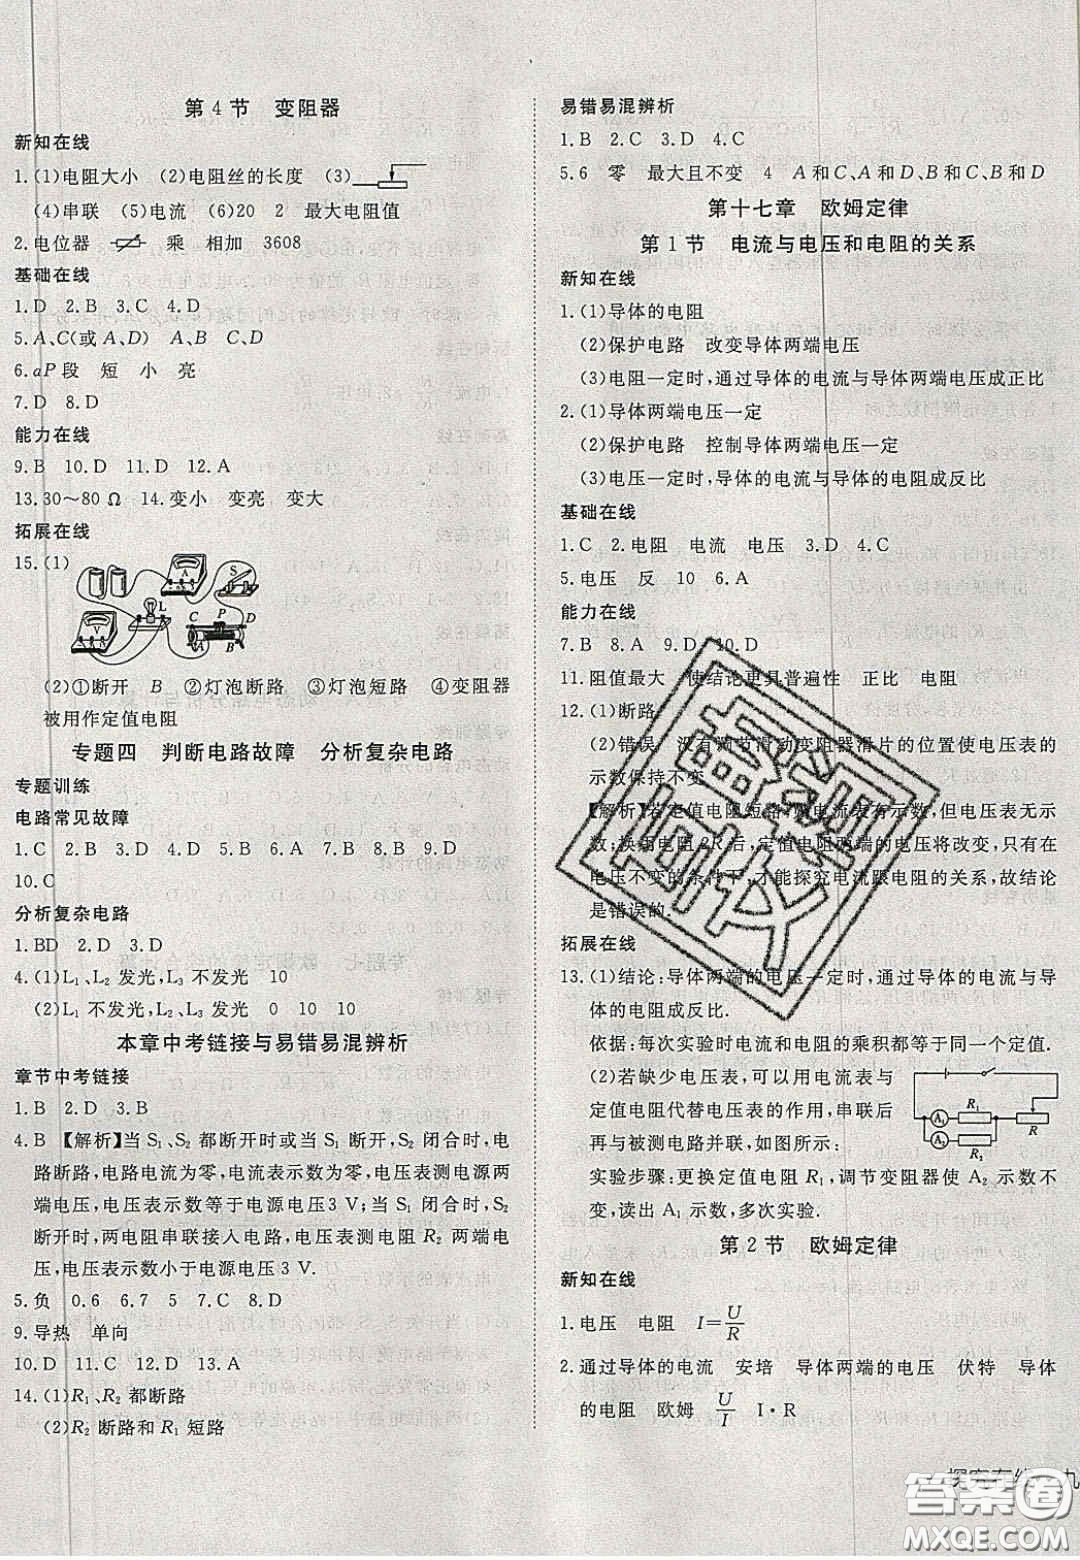 第4节 变阻器
新知在线
1.(1)电阻大小 (2)电阻丝的长度 (3)
(4)串联 (5)电流 (6)20 2 最大电阻值
2.电位器 乘 相加 3608
基础在线
1.D 2.B 3.C 4.D
5.A、C(或A、D) A、B C、D
6.aP段 短 小 亮
7.D 8.D
能力在线
9.B 10.D 11.D 12.A
13.30～80 Ω 14.变小 变亮 变大
拓展在线
15.(1)
A S
L
V C P D
A B
(2)①断开 B ②灯泡断路 ③灯泡短路 ④变阻器
被用作定值电阻
专题四 判断电路故障 分析复杂电路
专题训练
电路常见故障
1.C 2.B 3.D 4.D 5.D 6.A 7.B 8.B 9.B
10.C
分析复杂电路
1.BD 2.D 3.D
4.(1)L₁、L₂ 发光,L₃ 不发光 10
(2)L₁ 不发光 0 10 10
本章中考链接与易错易混辨析
章节中考链接
1.B 2.D 3.B
4.B 【解析】当 S₁、S₂ 都断开时或当 S₁ 断开,S₂ 闭合时,电
路断路,电路电流为零,电流表示数为零,电压表测电源两
端电压,电压表示数等于电源电压3 V;当 S₁ 闭合、S₂
断开时,两电阻串联接入电路,电压表测电阻 R₂ 两端电
压,电压表示数小于电源电压3 V.
5.负 0.6 6.7 5 7.C 8.D
9.导热 单向
10.D 11.C 12.D 13.A
14.(1)R₁、R₂ 都断路
(2)R₂ 断路和 R₁ 短路
易错易混辨析
1.B 2.C 3.D 4.C
5.6 零 最大且不变 4 A和C、A和D、B和C、B和D
第十七章 欧姆定律
第1节 电流与电压和电阻的关系
新知在线
1.(1)导体的电阻
(2)保护电路 改变导体两端电压
(3)电阻一定时,通过导体的电流与导体两端电压成正比
2.(1)导体两端电压一定
(2)保护电路 控制导体两端电压一定
(3)电压一定时,导体的电流与导体的电阻成反比
基础在线
1.C 2.电阻 电流 电压 3.D 4.C
5.电压 反 10 6.A
能力在线
7.B 8.A 9.D 10.D
11.阻值最大 使结论更具普遍性 正比 电阻
12.(1)断路
(2)错误 没有调节滑动变阻器滑片的位置使电压表的
示数保持不变
【解析】若定值电阻短路,则电流表有示数,但电压表无示
数;换用电阻2R后,定值电阻两端的电压将改变,只有在
电压不变的条件下,才能探究电流跟电阻的关系,故结论
是错误的.
拓展在线
13.(1)结论:导体两端的电压一定时,通过导体的电流与导
体的电阻成反比.
依据:每次实验时电流和电阻的乘积都等于同一个定值.
(2)若缺少电压表,可以用电流表与
定值电阻代替电压表的作用,串联后
再与被测电路并联,如图所示:
A₁ R₁
A₂ R₂ R
实验步骤:更换定值电阻 R₁,调节变阻器使 A₂ 示数不
变,读出 A₁ 示数,多次实验.
第2节 欧姆定律
新知在线
1.电压 电阻 I=U/R
2.通过导体的电流 安培 导体两端的电压 伏特 导体
的电阻 欧姆 U/I I·R
探究在线·九
答案圈
MXQE.COM